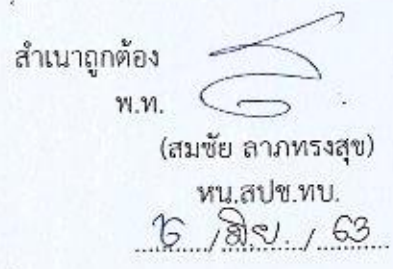 สำเนาถูกต้อง
พ.ท.
(สมชัย ลาภทรงสุข)
หน.สปช.ทบ.
/ มิ.ย. / 63